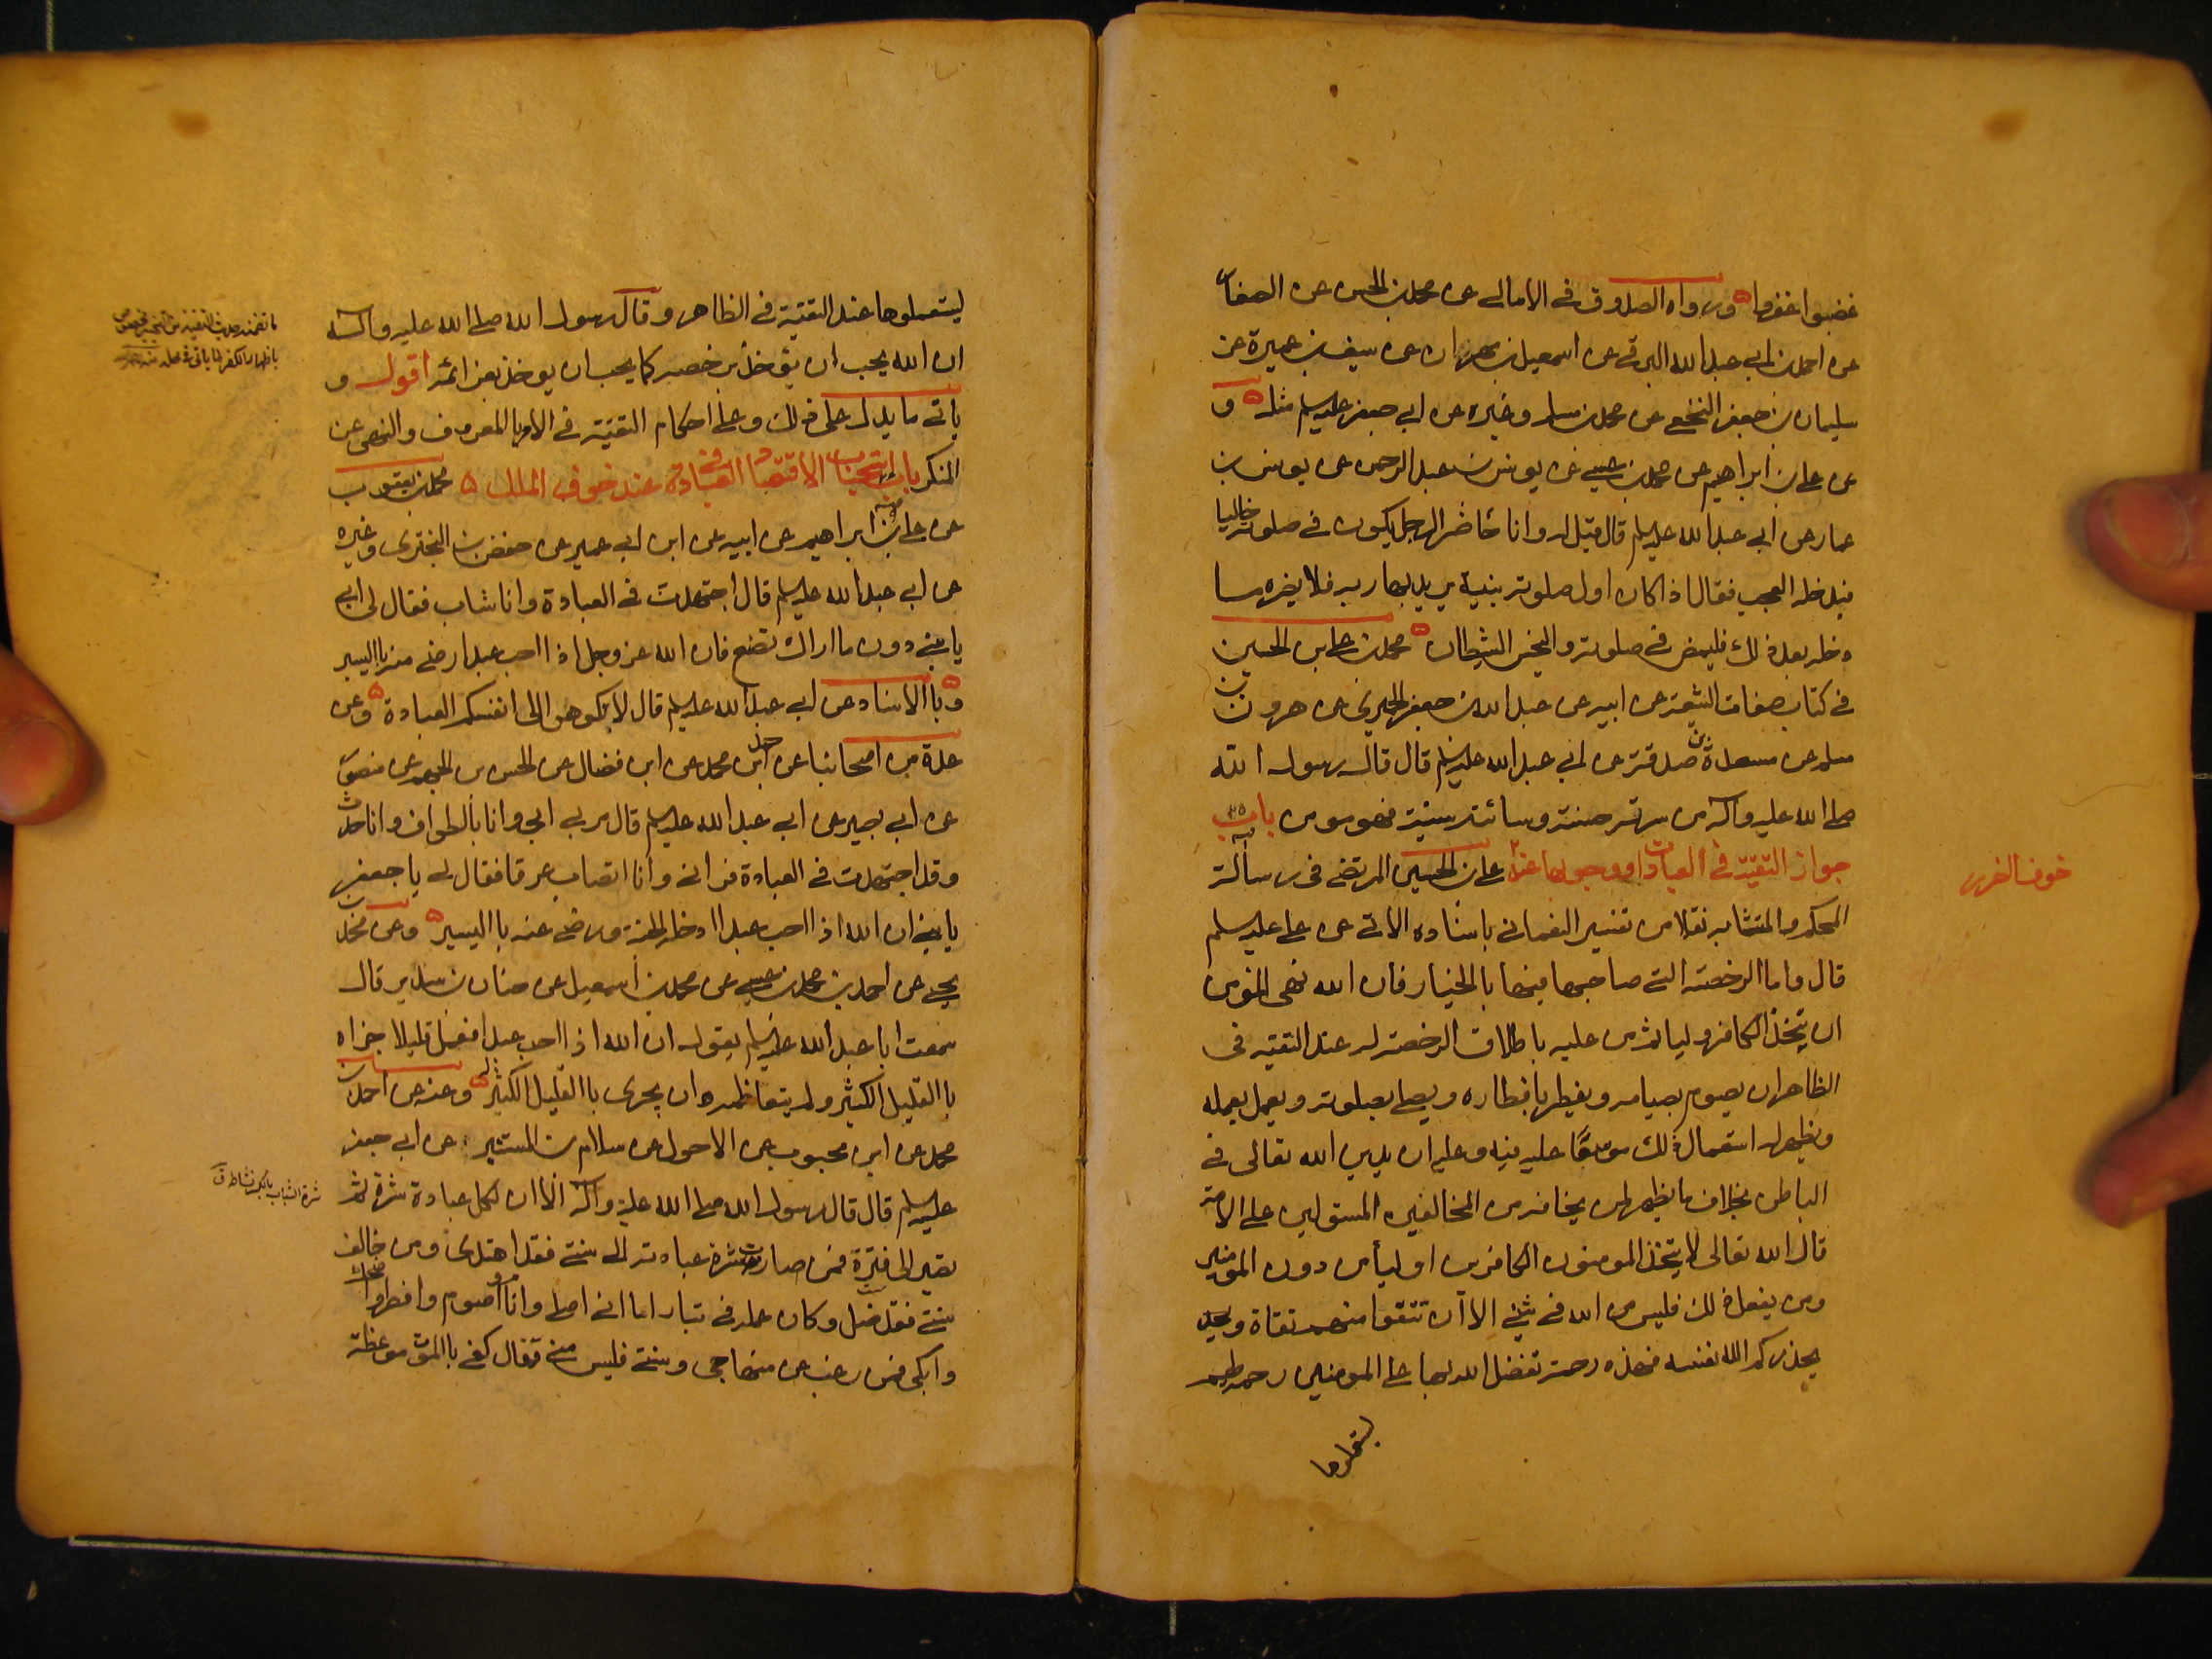 غضبوا غفروا ورواه الصدوق في الامالي عن محمد بن الحسن عن الصفار
عن احمد بن ابي عبد الله البرقي عن اسمعيل بن مهران عن سيف بن عميرة عن
سليمان بن جعفر النخعي عن محمد بن مسلم وغيره عن ابي جعفر عليه السلم مثله و
عن علي بن ابراهيم عن محمد بن عيسى عن يونس بن عبد الرحمن عن يونس بن
عمار عن ابي عبد الله عليه السلم قال قيل له وانا حاضر الرجل يكون في صلوته خاليا
فيدخله العجب فقال اذا كان اول صلوته بنية يريد بها ربه فلا يضره ما
دخله بعد ذلك فليمض في صلوته وليخس الشيطان محمد بن علي بن الحسين
في كتاب صفات الشيعة عن ابيه عن عبد الله بن جعفر الحميري عن هرون بن
مسلم عن مسعدة بن صدقة عن ابي عبد الله عليه السلم قال قال رسول الله
صلى الله عليه وآله من سرته حسنته وسائته سيئته فهو مومن باب
جواز التقية في العبادات ووجوبها عند علي بن الحسين المرتضى في رسالة
خوف الضرر
المحكم والمتشابه نقلا من تفسير النعماني باسناده الاتي عن علي عليه السلم
قال واما الرخصة التي صاحبها فيها بالخيار فان الله نهى المؤمن
ان يتخذ الكافر وليا ثم من عليه باطلاق الرخصة له عند التقية في
الظاهر ان يصوم بصيامه ويفطر بافطاره ويصلي بصلوته ويعمل بعمله
ويظهر له استعمال ذلك موسعا عليه فيه وعليه ان يدين الله تعالى في
الباطن بخلاف ما يظهر لمن يخافه من المخالفين المستولين على الامة
قال الله تعالى لا يتخذ المومنون الكافرين اولياء من دون المومنين
ومن يفعل ذلك فليس من الله في شيء الا ان تتقوا منهم تقاة
يحذركم الله نفسه فهذه رحمة تفضل الله بها على المومنين رحمة لهم
ليستعملوها
ليستعملوها عند التقية في الظاهر وقال رسول الله صلى الله عليه وآله
ان الله يحب ان يؤخذ برخصه كما يحب ان يوخذ بعزائمه اقول و
ياتي ما يدل على ذلك وعلى احكام التقية في الامر بالمعروف والنهي عن
المنكر باب استحباب الاقتصاد في العبادة عند خوف الملل محمد بن يعقوب
عن علي بن ابراهيم عن ابيه عن ابن ابي عمير عن حفص بن البختري وغيره
عن ابي عبد الله عليه السلم قال اجتهدت في العبادة وانا شاب فقال لي ابي
يا بني دون ما اراك تصنع فان الله عز وجل اذا احب عبدا رضي منه باليسير
وبالاسناد عن ابي عبد الله عليه السلم قال لا تكرهوا الى انفسكم العبادة وعن
عدة من اصحابنا عن احمد بن محمد عن ابن فضال عن الحسن بن الجهم عن منصور
عن ابي بصير عن ابي عبد الله عليه السلم قال مر بي ابي وانا بالطواف وانا حدث
وقد اجتهدت في العبادة فراني وانا اتصاب عرقا فقال لي يا جعفر
يا بني ان الله اذا احب عبدا ادخله الجنة ورضي عنه باليسير وعن محمد بن
يحيى عن احمد بن محمد بن عيسى عن محمد بن اسمعيل عن حنان بن سدير قال
سمعت ابا عبد الله عليه السلم يقول ان الله اذا احب عبدا فعمل قليلا جزاه
بالقليل الكثير ولم يتعاظمه ان يجزي بالقليل الكثير له وعنه عن احمد بن
محمد عن ابن محبوب عن الاحول عن سلام بن المستنير عن ابي جعفر
عليه السلم قال قال رسول الله صلى الله عليه وآله الا ان لكل عبادة شرة ثم
شرة الشباب بالكسر نشاطه ق
تصير الى فترة فمن صارت شرة عبادته الى سنتي فقد اهتدى ومن خالف
سنتي فقد ضل وكان عمله في تبار اما اني اصلي وانام واصوم وافطر واضحك
وابكي فمن رغب عن منهاجي وسنتي فليس مني وقال كفى بالموت موعظة